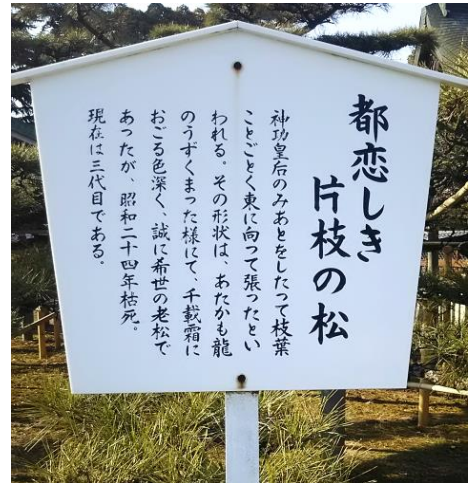 都恋しき
片枝の松
神功皇后のみあとをしたって枝葉
ことごとく東に向って張ったとい
われる。その形状は、あたかも龍
のうずくまった様にて、千載霜に
おごる色深く、誠に希世の老松で
あったが、昭和二十四年枯死。
現在は三代目である。